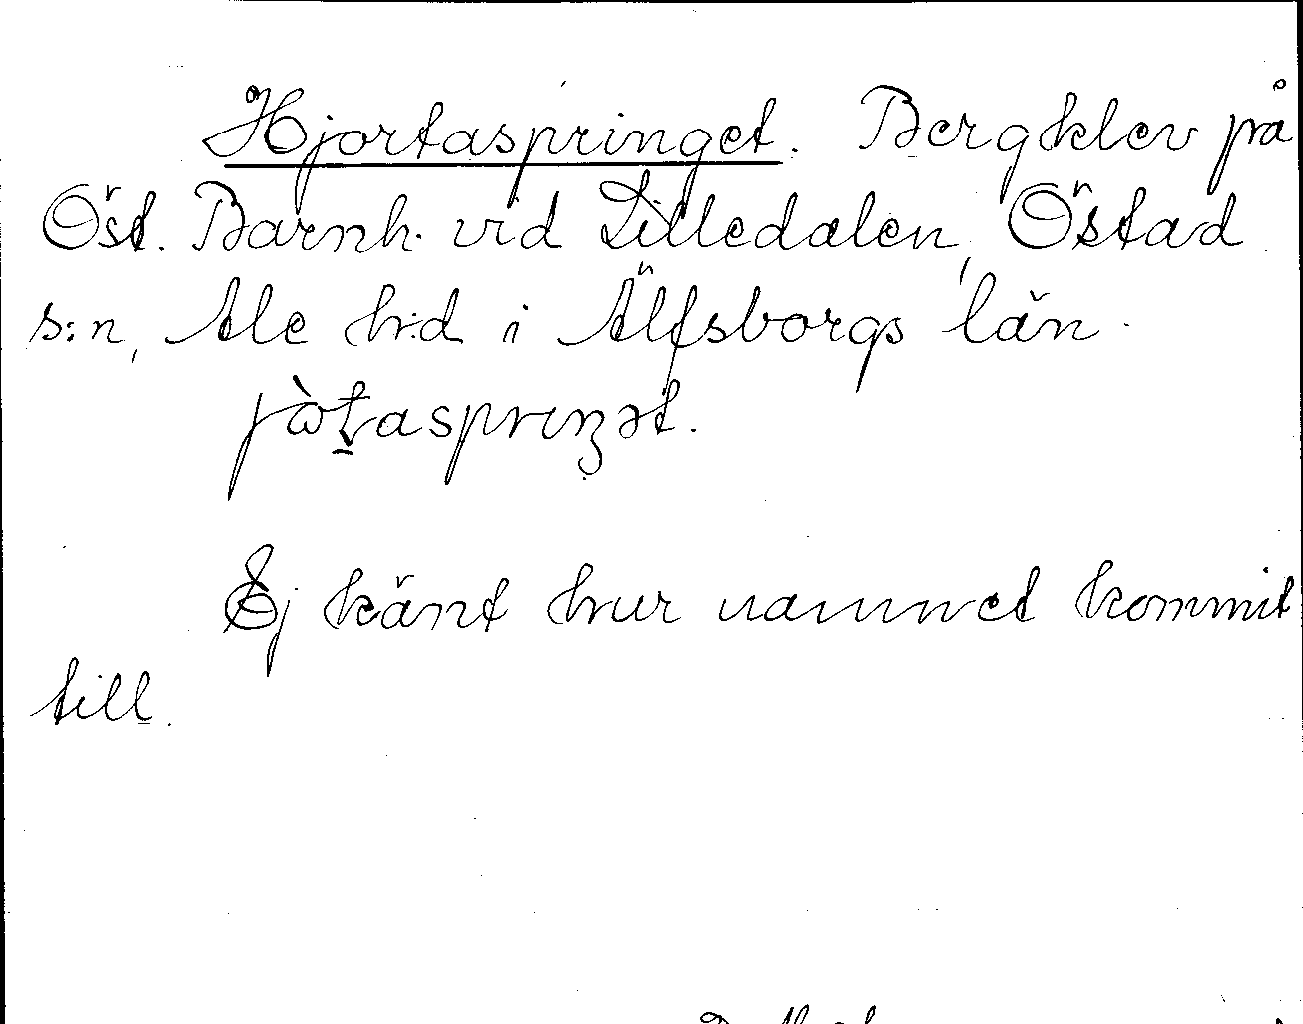 Hjortaspringet. Bergklev på
Öst. Barnh. vid Lilledalen, Östad
s:n, Ale h:d i Älfsborgs län.
Ej känt hur namnet kommit
till.